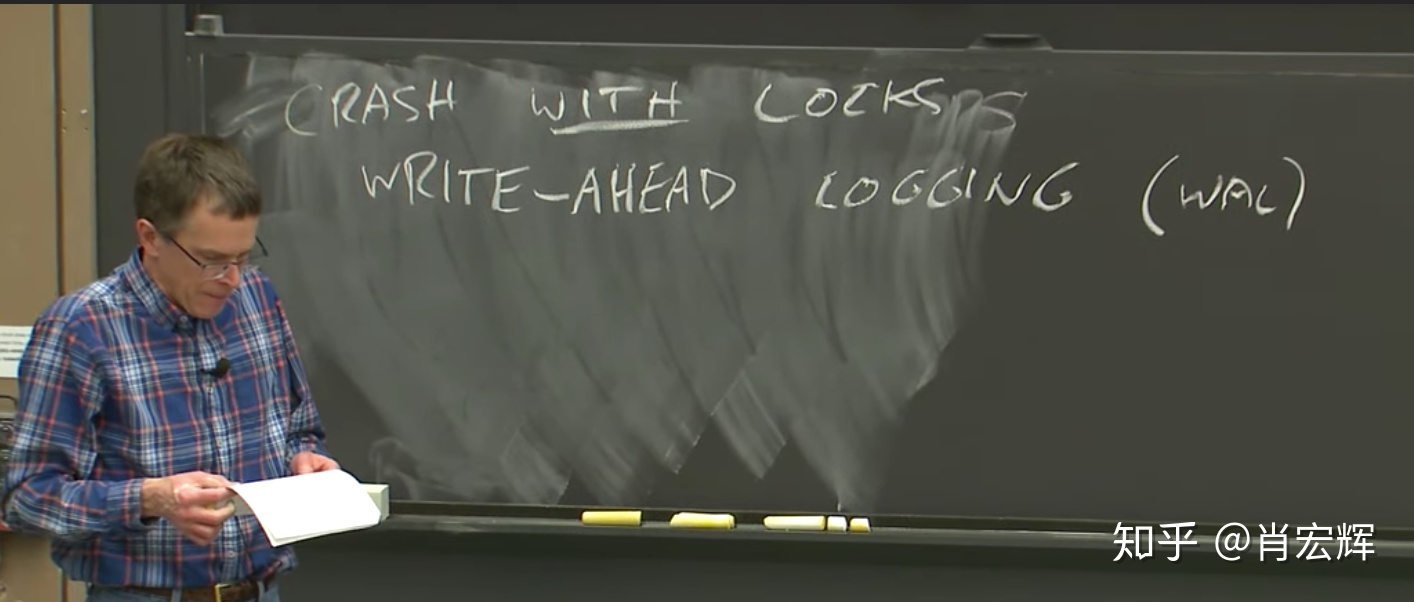 CRASH WITH LOCKS
WRITE-AHEAD LOGGING (WAL)
知乎 @肖宏辉